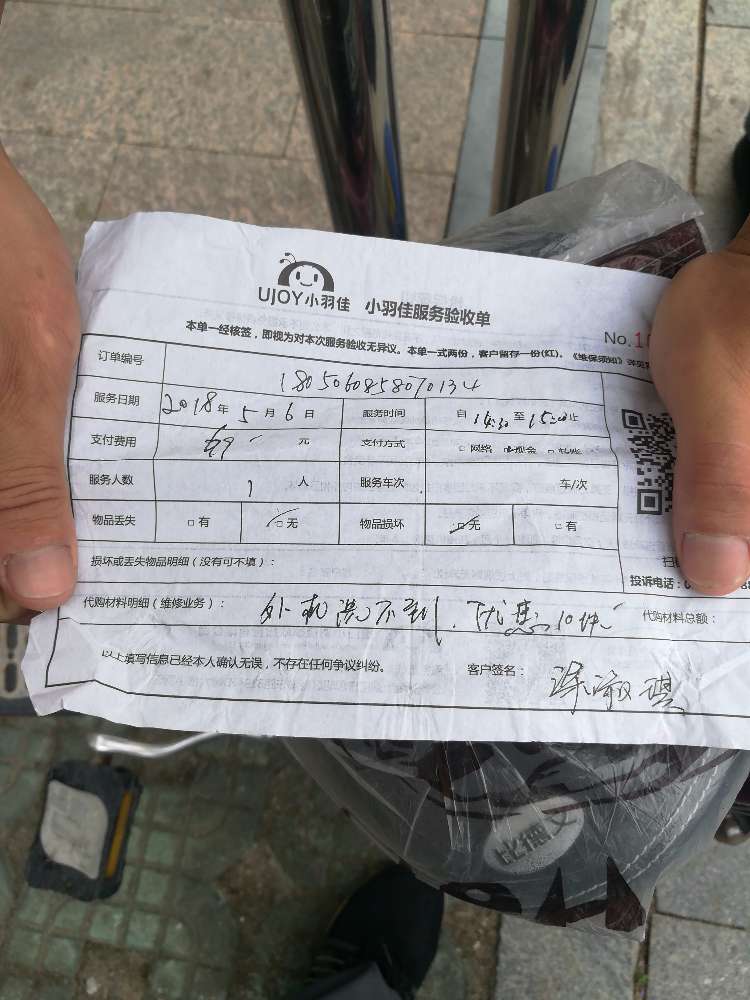 UJOY小羽佳 小羽佳服务验收单
No.1
本单一经核签，即视为对本次服务验收无异议。本单一式两份，客户留存一份(红)。《维保须知》详见
订单编号 1805060858070134
服务日期 2018年5月6日 服务时间 自14:30至15:00止
支付费用 元 支付方式 □网络 □现金 □转账
服务人数 1人 服务车次 车/次
物品丢失 □有 □无 物品损坏 □无 □有
损坏或丢失物品明细（没有可不填）：
投诉电话：0
代购材料明细（维修业务）： 外机洗不到，优惠10 代购材料总额：
以上填写信息已经本人确认无误，不存在任何争议纠纷。 客户签名：
比德文